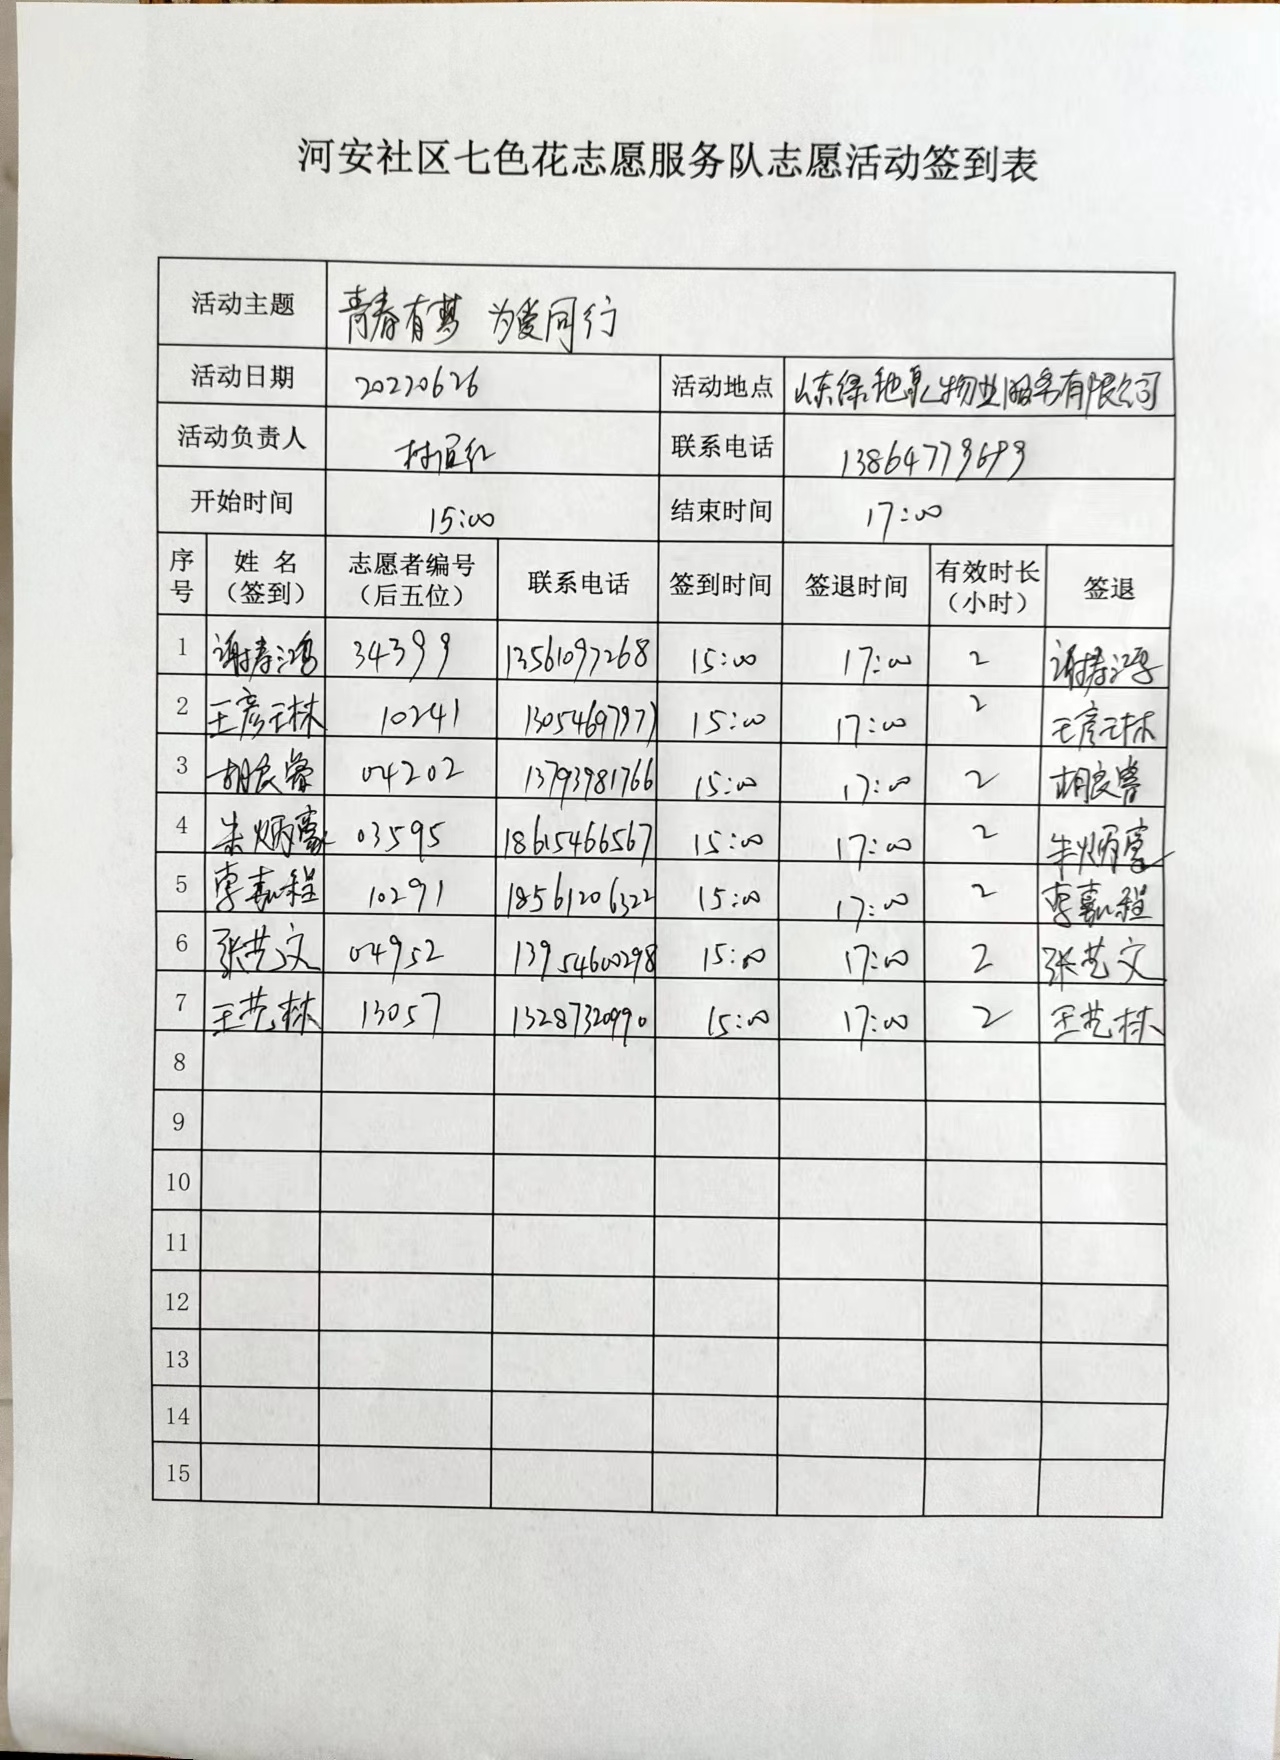 河安社区七色花志愿服务队志愿活动签到表
活动主题 青春有梦 为爱同行
活动日期 20220626 活动地点 山东绿地泉物业服务有限公司
活动负责人 联系电话 13864779699
开始时间 15:00 结束时间 17:00
序号 姓名（签到） 志愿者编号（后五位） 联系电话 签到时间 签退时间 有效时长（小时） 签退
1 谢寿鸿 34399 13561097268 15:00 17:00 2 谢寿鸿
2 王彦林 10241 13054697977 15:00 17:00 2 王彦林
3 胡良誉 04202 13793981766 15:00 17:00 2 胡良誉
4 朱炳豪 03595 18615466567 15:00 17:00 2 朱炳豪
5 李嘉程 10291 18561206322 15:00 17:00 2 李嘉程
6 张艺文 04952 13954600298 15:00 17:00 2 张艺文
7 王艺林 13057 13287320990 15:00 17:00 2 王艺林
8
9
10
11
12
13
14
15